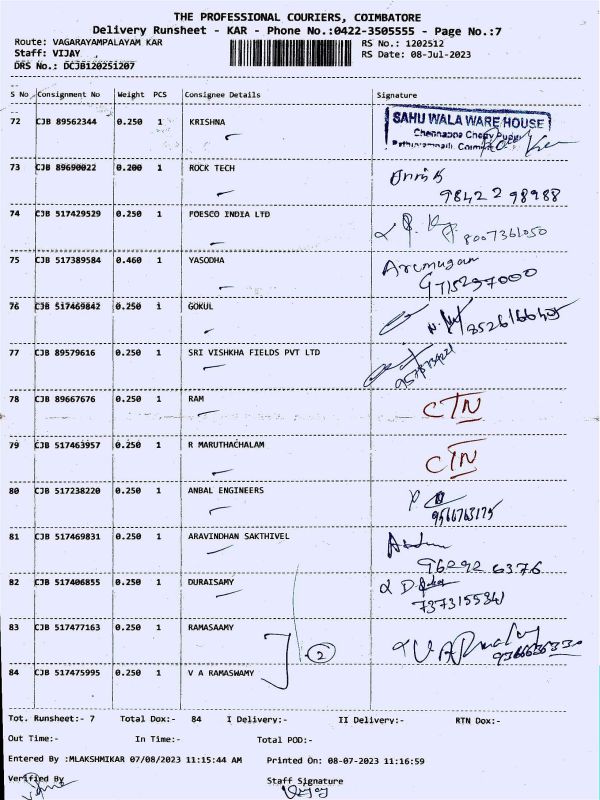 THE PROFESSIONAL COURIERS, COIMBATORE
Delivery Runsheet - KAR - Phone No.:0422-3505555 - Page No.:7
Route: VAGARAYAMPALAYAM KAR RS No.: 1202512
Staff: VIJAY RS Date: 08-Jul-2023
DRS No.: DCJB120251207
S No Consignment No Weight PCS Consignee Details Signature
72 CJB 89562344 0.250 1 KRISHNA SAHU WALA WARE HOUSE
73 CJB 89690022 0.200 1 ROCK TECH
98422 98988
74 CJB 517429529 0.250 1 FOESCO INDIA LTD
8007361050
75 CJB 517389584 0.460 1 YASODHA Arumugam
9715297000
76 CJB 517469842 0.250 1 GOKUL
77 CJB 89579616 0.250 1 SRI VISHKHA FIELDS PVT LTD
78 CJB 89667676 0.250 1 RAM CTN
79 CJB 517463957 0.250 1 R MARUTHACHALAM CTN
80 CJB 517238220 0.250 1 ANBAL ENGINEERS
9566763175
81 CJB 517469831 0.250 1 ARAVINDHAN SAKTHIVEL
96292 6376
82 CJB 517406855 0.250 1 DURAISAMY
7373155341
83 CJB 517477163 0.250 1 RAMASAAMY
2
84 CJB 517475995 0.250 1 V A RAMASWAMY
Tot. Runsheet:- 7 Total Dox:- 84 I Delivery:- II Delivery:- RTN Dox:-
Out Time:- In Time:- Total POD:-
Entered By :MLAKSHMIKAR 07/08/2023 11:15:44 AM Printed On: 08-07-2023 11:16:59
Verified By Staff Signature
Vijay